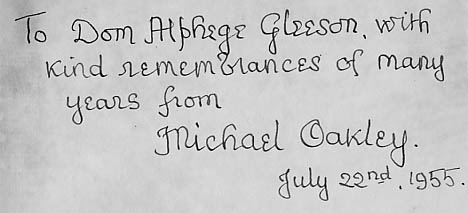 To Dom Alphege Gleeson, with
kind remembrances of many
years from
Michael Oakley.
July 22nd, 1955.